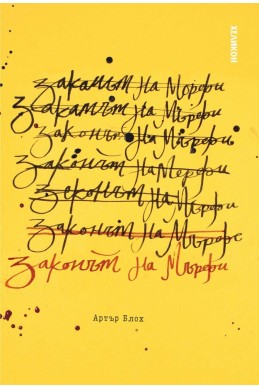 ХЕЛИКОН
Закамът на Морфи
Закамчт на Мърфи
Законът на Мърфи
Законът на Мерфи
Зеконът на Мърфи
Законът на Мърфе
Законът на Мърфи
Артър Блох